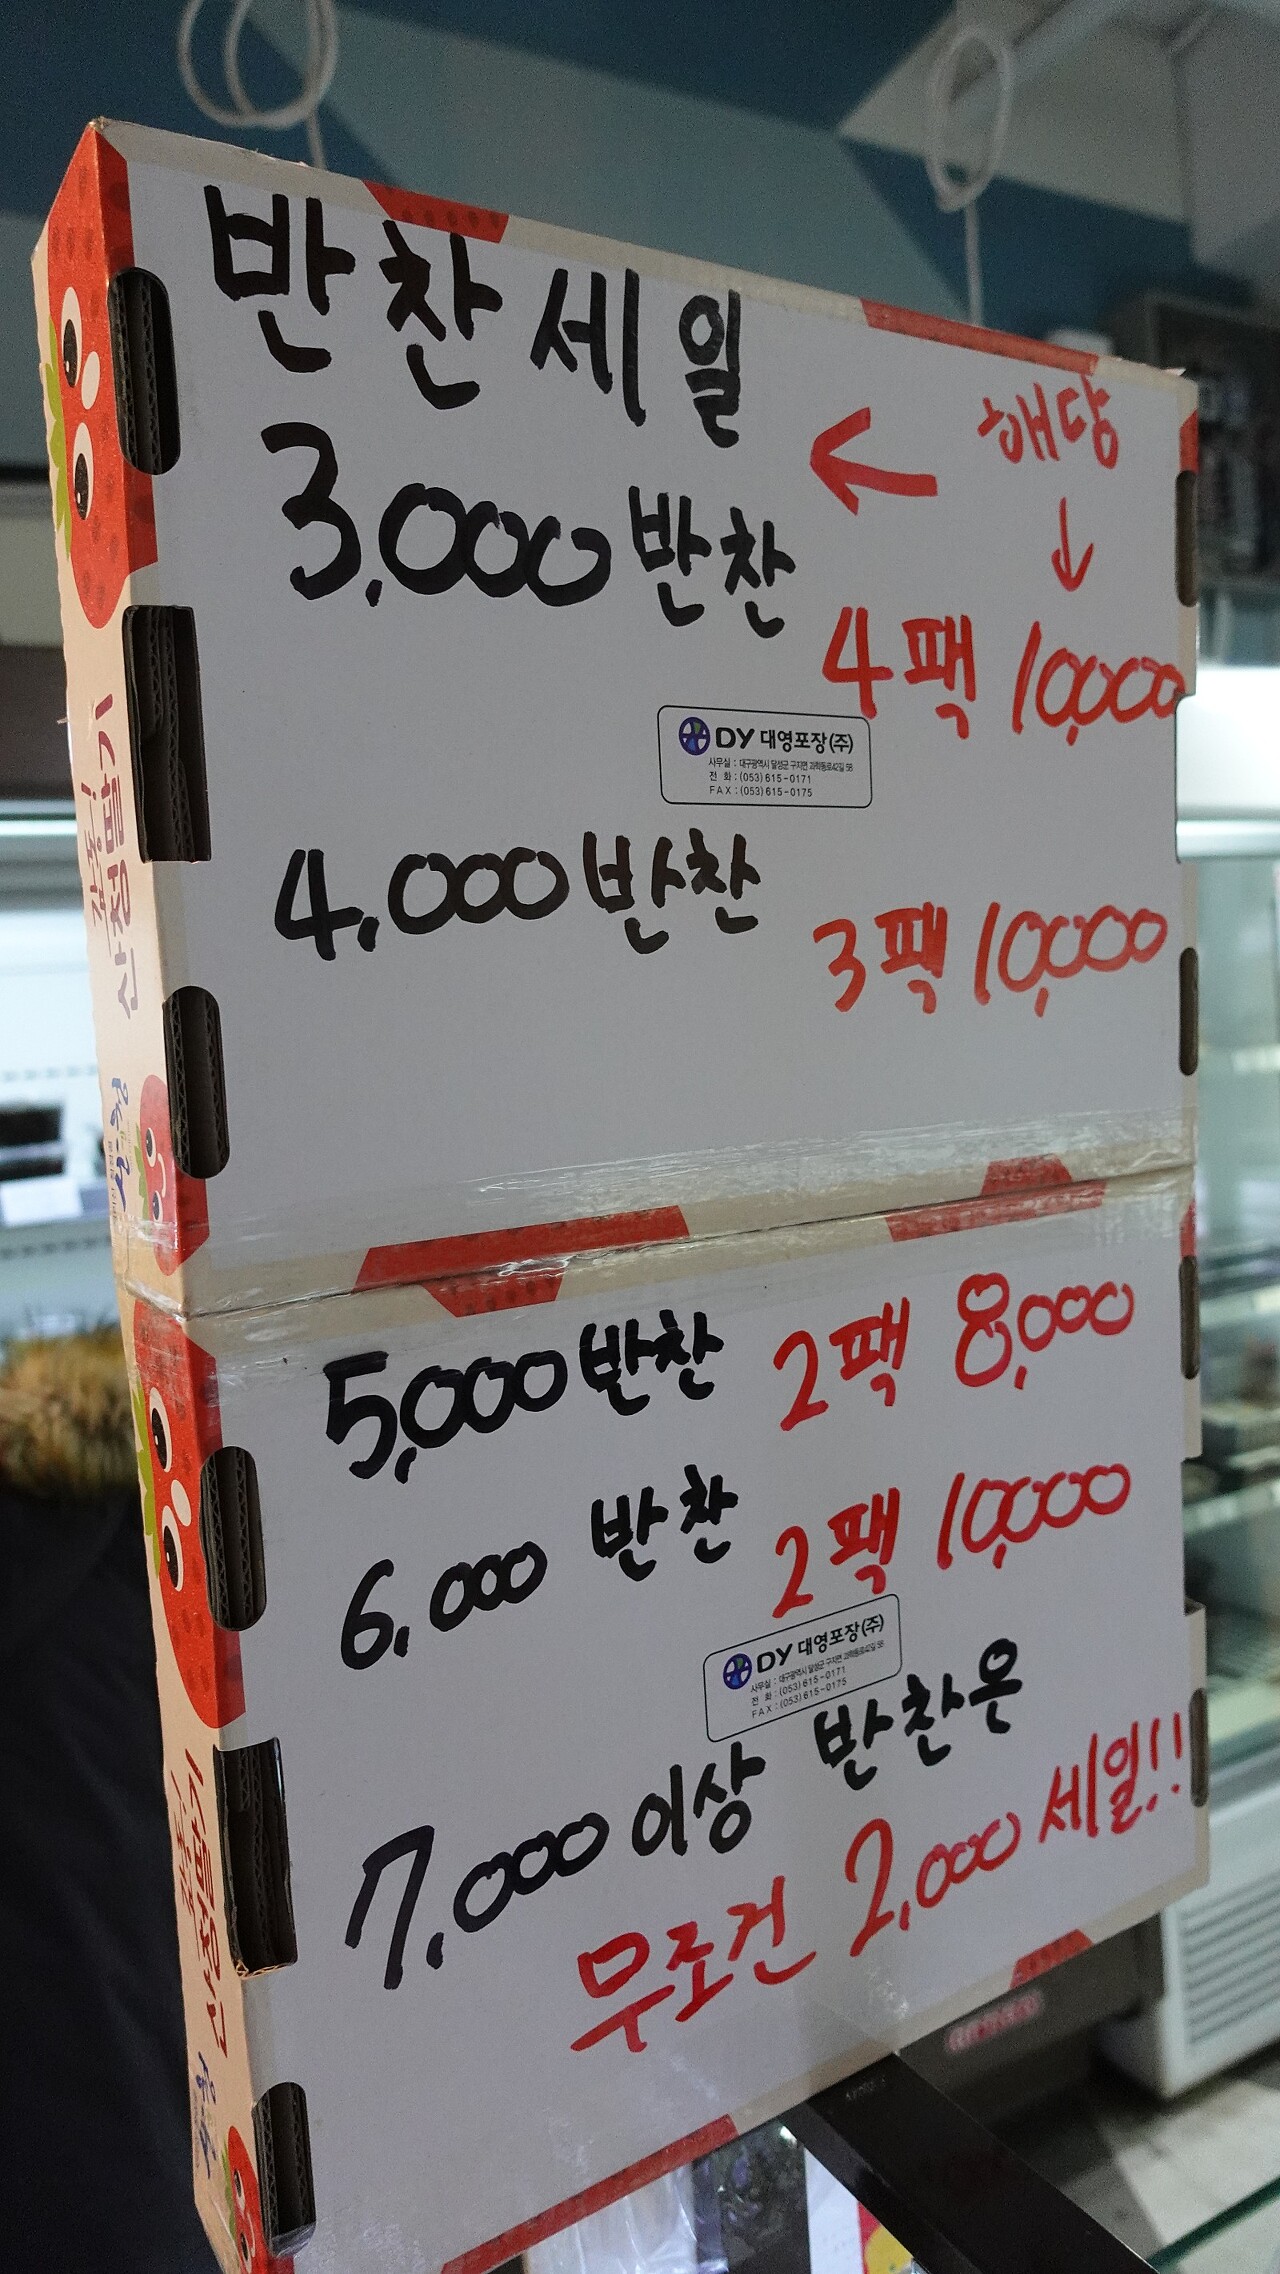 반찬세일
해당
3,000 반찬
4팩 10,000
DY 대영포장(주)
사무실 : 대구광역시 달성군 구지면 과학동로42길 58
전 화 : (053) 615-0171
FAX : (053) 615-0175
4,000 반찬
3팩 10,000
5,000 반찬 2팩 8,000
6,000 반찬 2팩 10,000
DY 대영포장(주)
사무실 : 대구광역시 달성군 구지면 과학동로42길 58
전 화 : (053) 615-0171
FAX : (053) 615-0175
7,000 이상 반찬은
무조건 2,000 세일!!
산청딸기